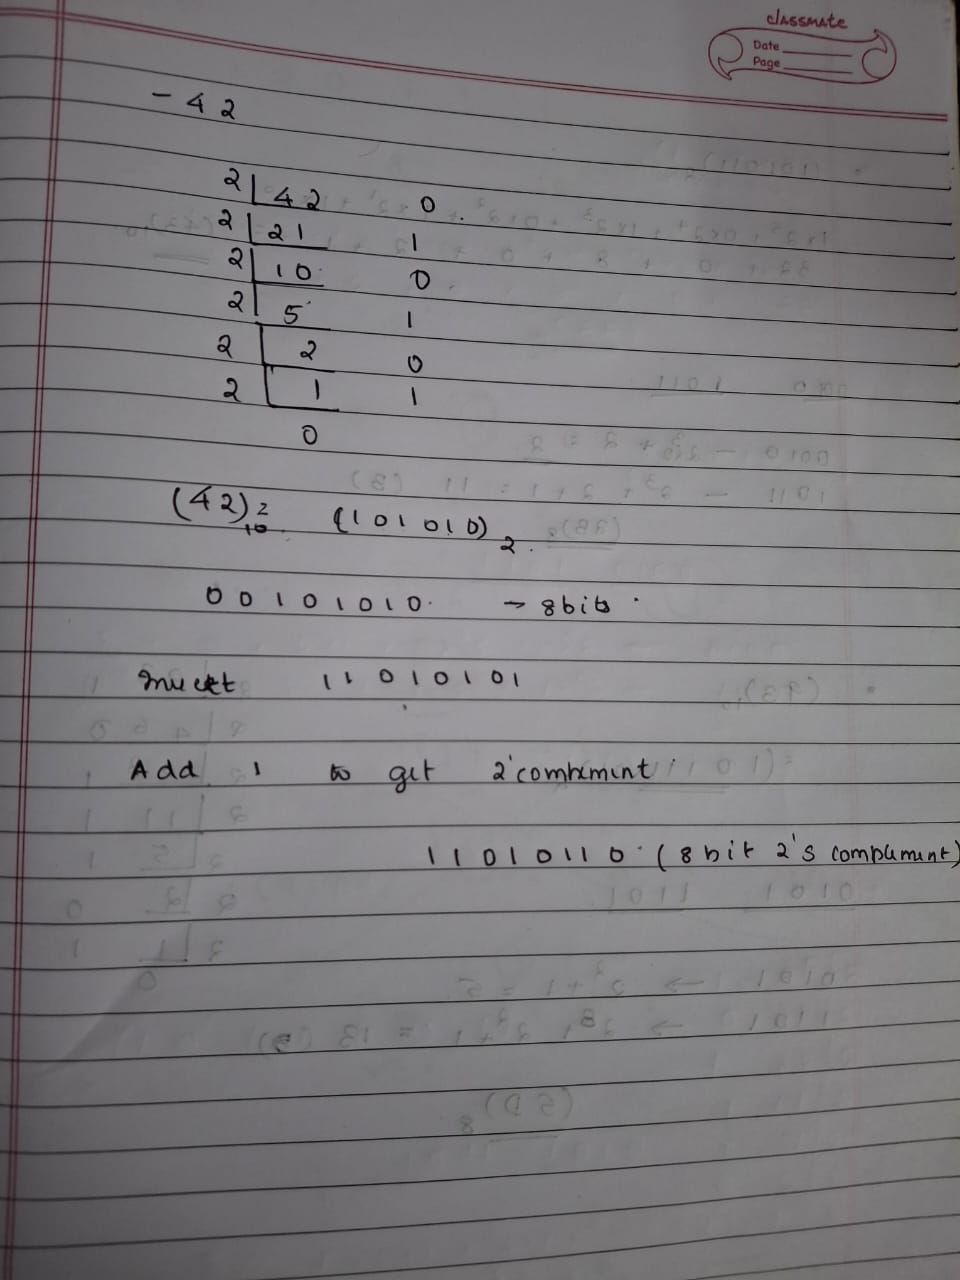 classmate
Date
Page
- 42
2 42 0
2 21 1
2 10 0
2 5 1
2 2 0
2 1 1
0
(42)10 (101010)2
00101010 → 8bits
Invert 11010101
Add 1 to get 2'compliment
11010110 (8 bit 2's compliment)